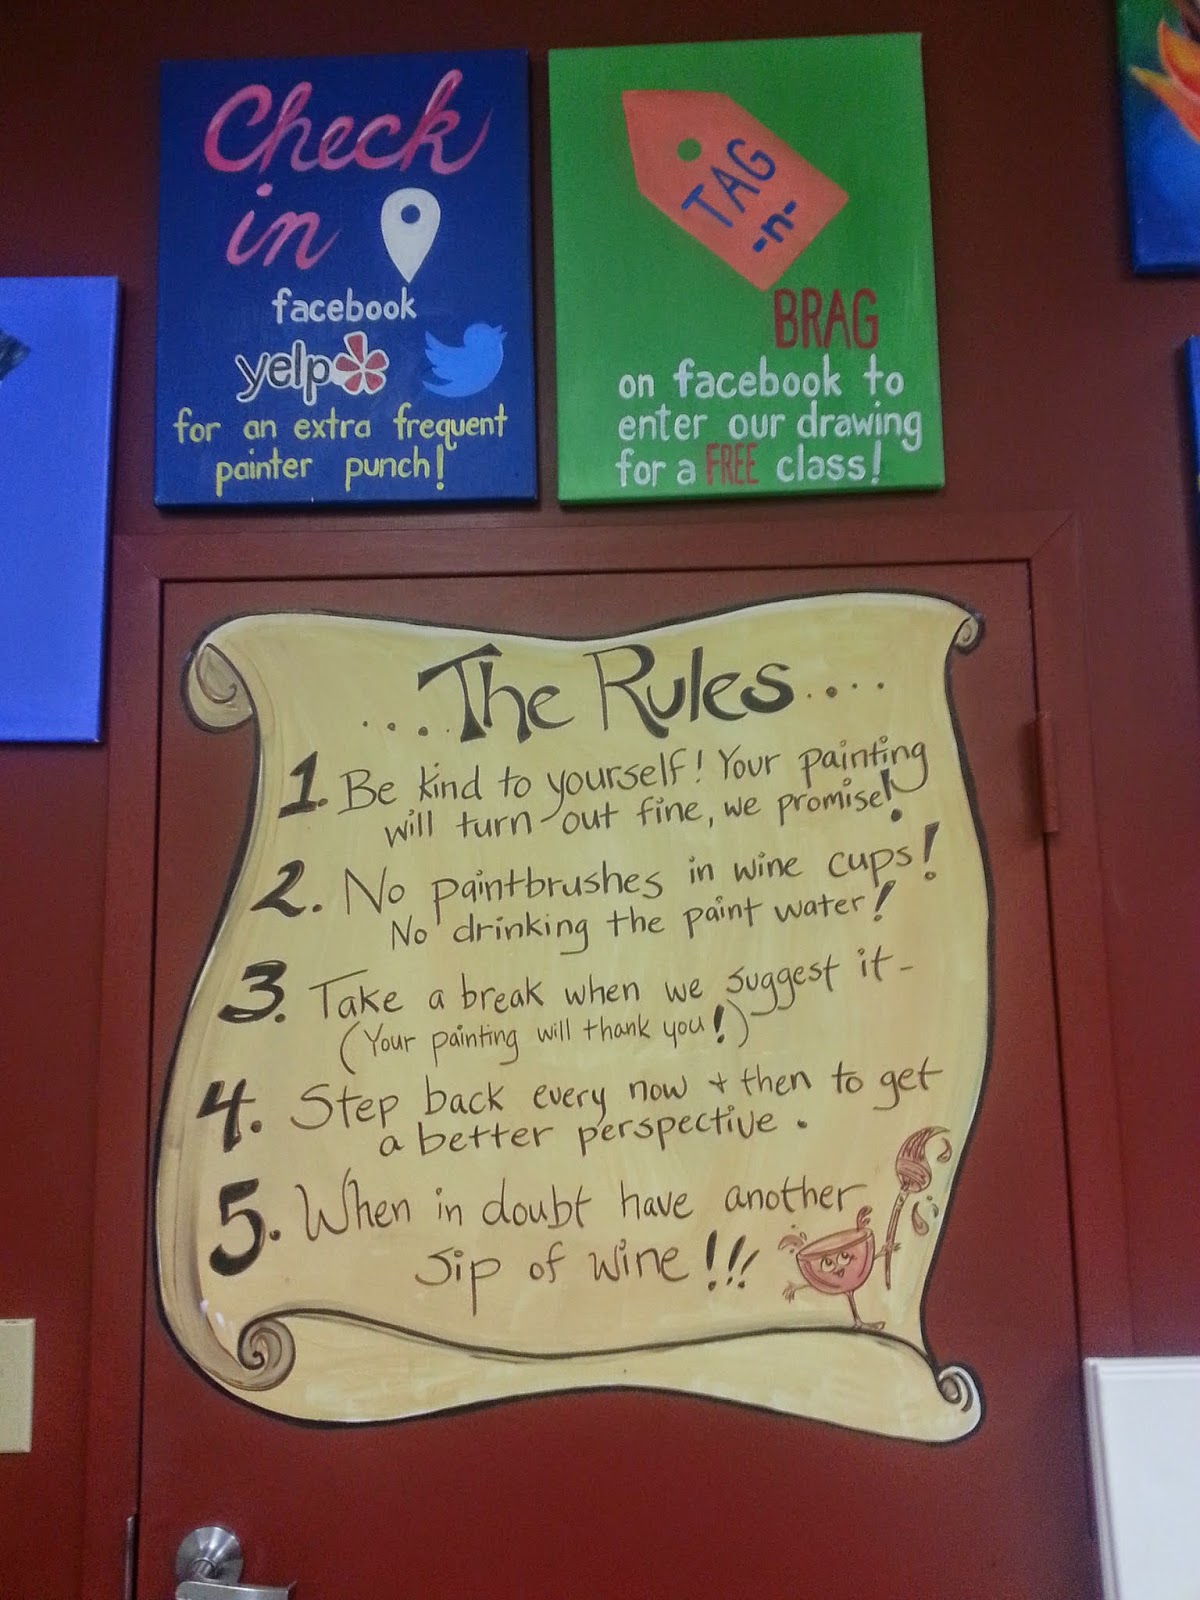 Check
in
facebook
yelp
for an extra frequent
painter punch!
TAG
-n-
BRAG
on facebook to
enter our drawing
for a FREE class!
....The Rules....
1. Be kind to yourself! Your painting
will turn out fine, we promise!
2. No paintbrushes in wine cups!
No drinking the paint water!
3. Take a break when we suggest it-
(Your painting will thank you!)
4. Step back every now + then to get
a better perspective.
5. When in doubt have another
sip of wine!!!